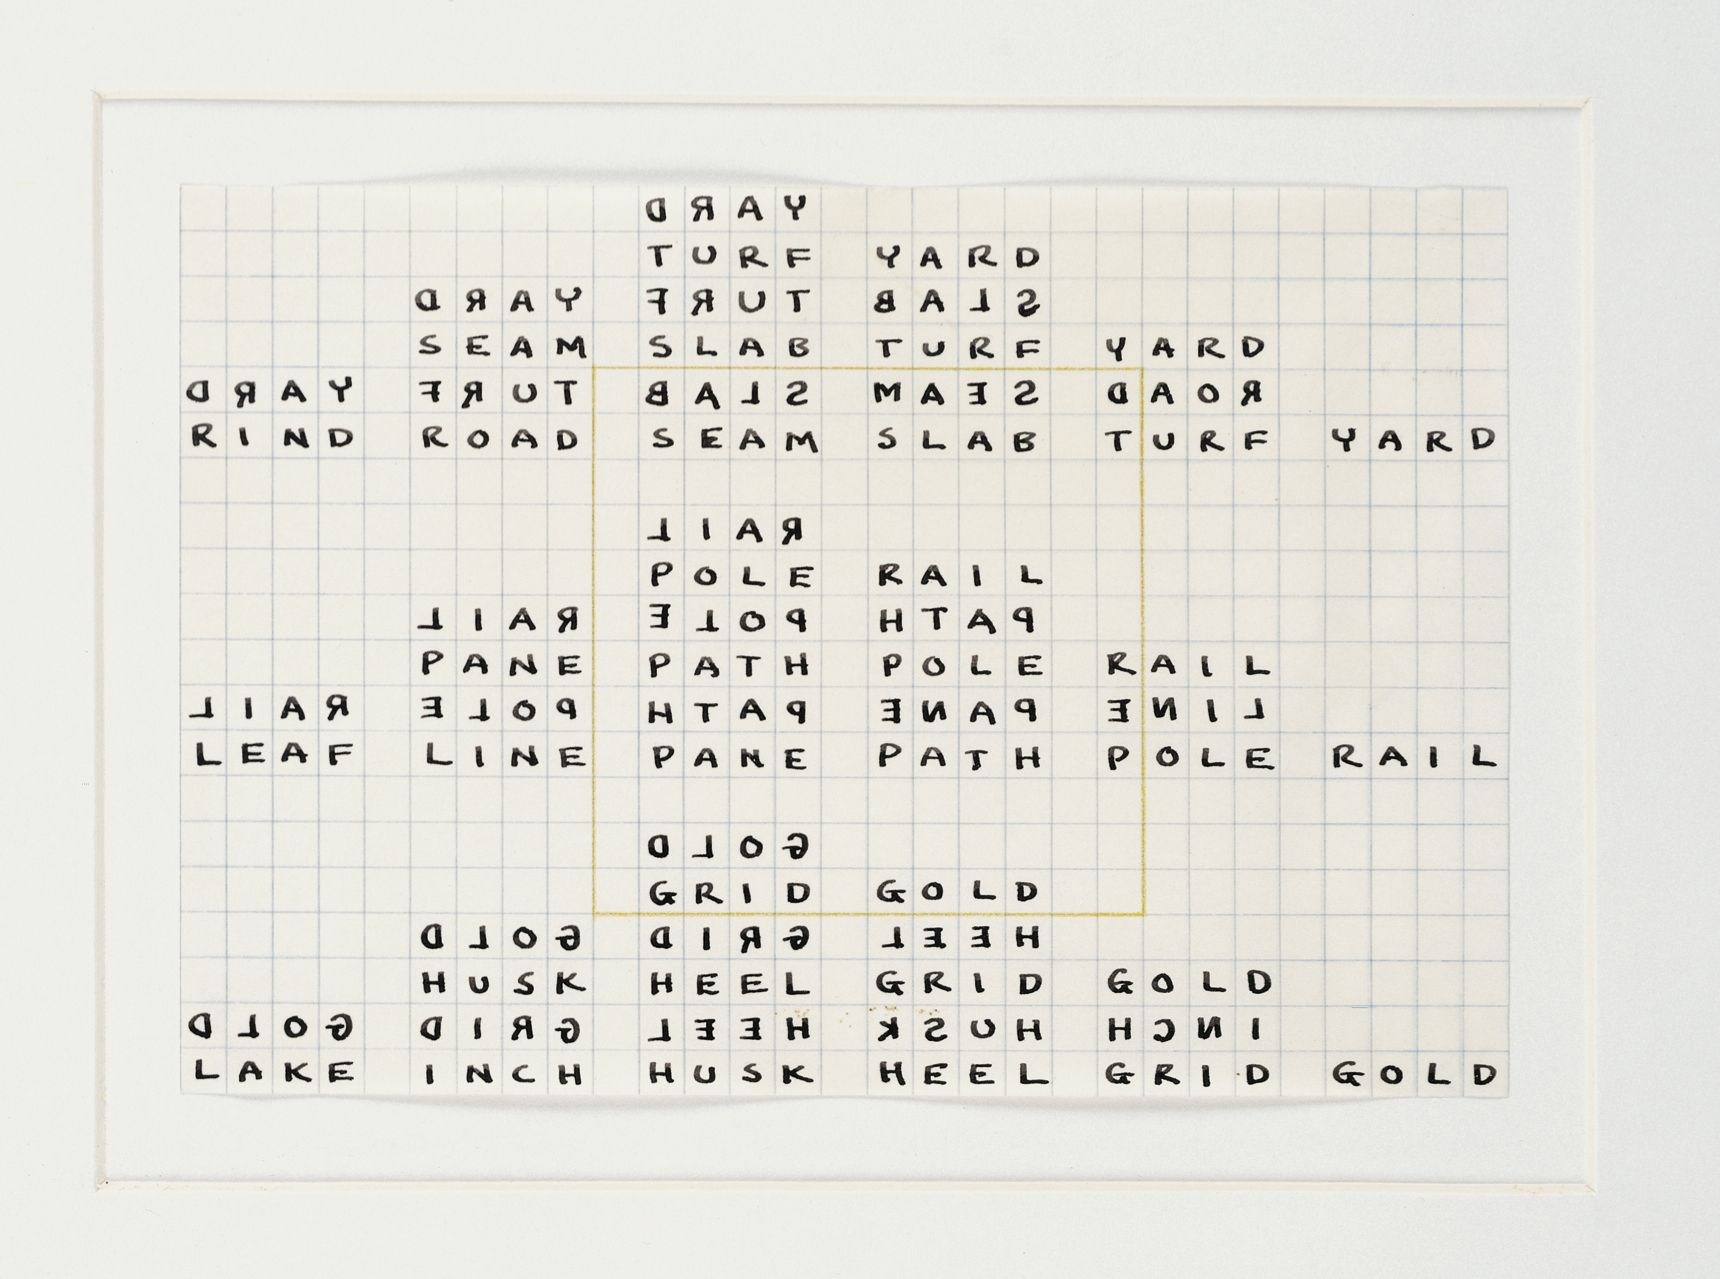 DRAY
TURF YARD
DRAY FRUT BALS
SEAM SLAB TURF YARD
DRAY FRUT BALS MAES DAOR
RIND ROAD SEAM SLAB TURF YARD
LIAR
POLE RAIL
LIAR ELOP HTAP
PANE PATH POLE RAIL
LIAR ELOP HTAP ENAP ENIL
LEAF LINE PANE PATH POLE RAIL
DLOG
GRID GOLD
DLOG DIRG LEEH
HUSK HEEL GRID GOLD
DLOG DIRG LEEH KSUH HCNI
LAKE INCH HUSK HEEL GRID GOLD